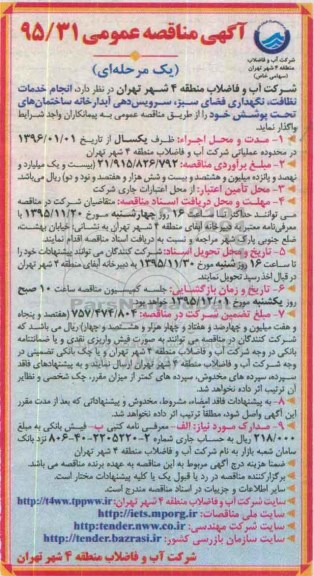 آگهی مناقصه عمومی ۹۵/۳۱
شرکت آب و فاضلاب
منطقه ۴ شهر تهران
(سهامی خاص)
(یک مرحله‌ای)
شرکت آب و فاضلاب منطقه ۴ شهر تهران در نظر دارد، انجام خدمات
نظافت، نگهداری فضای سبز، سرویس‌دهی آبدارخانه ساختمان‌های
تحت پوشش خود را از طریق مناقصه عمومی به پیمانکاران واجد شرایط
واگذار نماید.
۱- مدت و محل اجراء: ظرف یکسال از تاریخ ۱۳۹۶/۰۱/۰۱
در محدوده عملیاتی شرکت آب و فاضلاب منطقه ۴ شهر تهران
۲- مبلغ برآوردی مناقصه: ۲۱/۹۱۵/۸۲۶/۷۹۲ (بیست و یک میلیارد و
نهصد و پانزده میلیون و هشتصد و بیست و شش هزار و هفتصد و نود و دو) ریال می‌باشد.
۳- محل تأمین اعتبار: از محل اعتبارات جاری شرکت
۴- مهلت و محل دریافت اسناد مناقصه: متقاضیان شرکت در مناقصه
می توانند حداکثر تا ساعت ۱۶ روز چهارشنبه مورخ ۱۳۹۵/۱۱/۲۰ با
معرفی‌نامه معتبر به دبیرخانه آبفای منطقه ۴ شهر تهران به نشانی: خیابان بهشت،
ضلع جنوبی پارک شهر مراجعه و نسبت به دریافت اسناد مناقصه اقدام نمایند.
۵- تاریخ و محل تحویل اسناد: شرکت کنندگان می توانند پیشنهادات خود را
تا ساعت ۱۶ روز شنبه مورخ ۱۳۹۵/۱۱/۳۰ به دبیرخانه آبفای منطقه ۴ شهر تهران
در قبال اخذ رسید تحویل نمایند.
۶- تاریخ و زمان بازگشایی: جلسه کمیسیون مناقصه ساعت ۱۰ صبح
روز یکشنبه مورخ ۱۳۹۵/۱۲/۰۱ خواهد بود.
۷- مبلغ تضمین شرکت در مناقصه: ۷۵۷/۴۷۴/۸۰۴ (هفتصد و پنجاه
و هفت میلیون و چهارصد و هفتاد و چهار هزار و هشتصد و چهار) ریال می باشد که
شرکت کنندگان در مناقصه می توانند به صورت فیش واریزی نقدی و یا ضمانتنامه
بانکی در وجه شرکت آب و فاضلاب منطقه ۴ شهر تهران و یا چک بانکی تضمینی در
وجه شرکت آب و فاضلاب منطقه ۴ شهر تهران ارسال نمایند و به پیشنهادهای فاقد
سپرده، سپرده های مخدوش، سپرده های کمتر از میزان مقرر، چک شخصی و نظایر
آن ترتیب اثر داده نخواهد شد.
۸- به پیشنهادات فاقد امضاء، مشروط، مخدوش و پیشنهاداتی که بعد از مدت مقرر
این آگهی واصل شود، مطلقا ترتیب اثر داده نخواهد شد.
۹- مدارک مورد نیاز: الف- معرفی نامه کتبی ب- فیش بانکی به مبلغ
۲۱۸/۰۰۰ ریال به حساب جاری شماره ۲-۲۲۰۵۲۲۰-۴۰-۸۰۶ نزد بانک
سامان شعبه بازار به نام شرکت آب و فاضلاب منطقه ۴ شهر تهران
ضمنا هزینه درج آگهی مربوط به این مناقصه به عهده برنده مناقصه می باشد.
برگزارکننده مناقصه در رد یا قبول یک یا کلیه پیشنهادات مختار است.
سایر اطلاعات و جزییات در اسناد مناقصه مندرج است.
سایت شرکت آب و فاضلاب منطقه ۴ شهر تهران: http://t4ww.tppww.ir
سایت ملی مناقصات: http://iets.mporg.ir
سایت شرکت مهندسی: http://tender.nww.co.ir
سایت سازمان بازرسی کشور: http://tender.bazrasi.ir
شرکت آب و فاضلاب منطقه ۴ شهر تهران